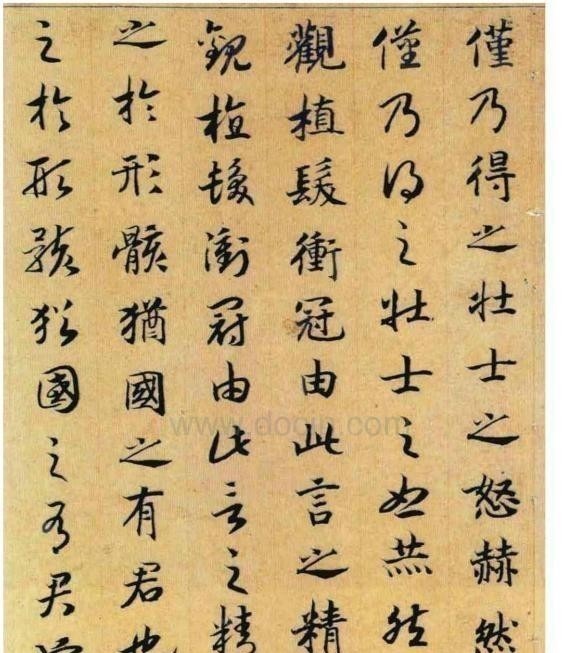 僅乃得之壯士之怒赫然
僅乃得之壯士之怒赫然
觀植髮衝冠由此言之精
觀植髮衝冠由此言之精
之於形骸猶國之有君也
之於形骸猶國之有君
www.docin.com